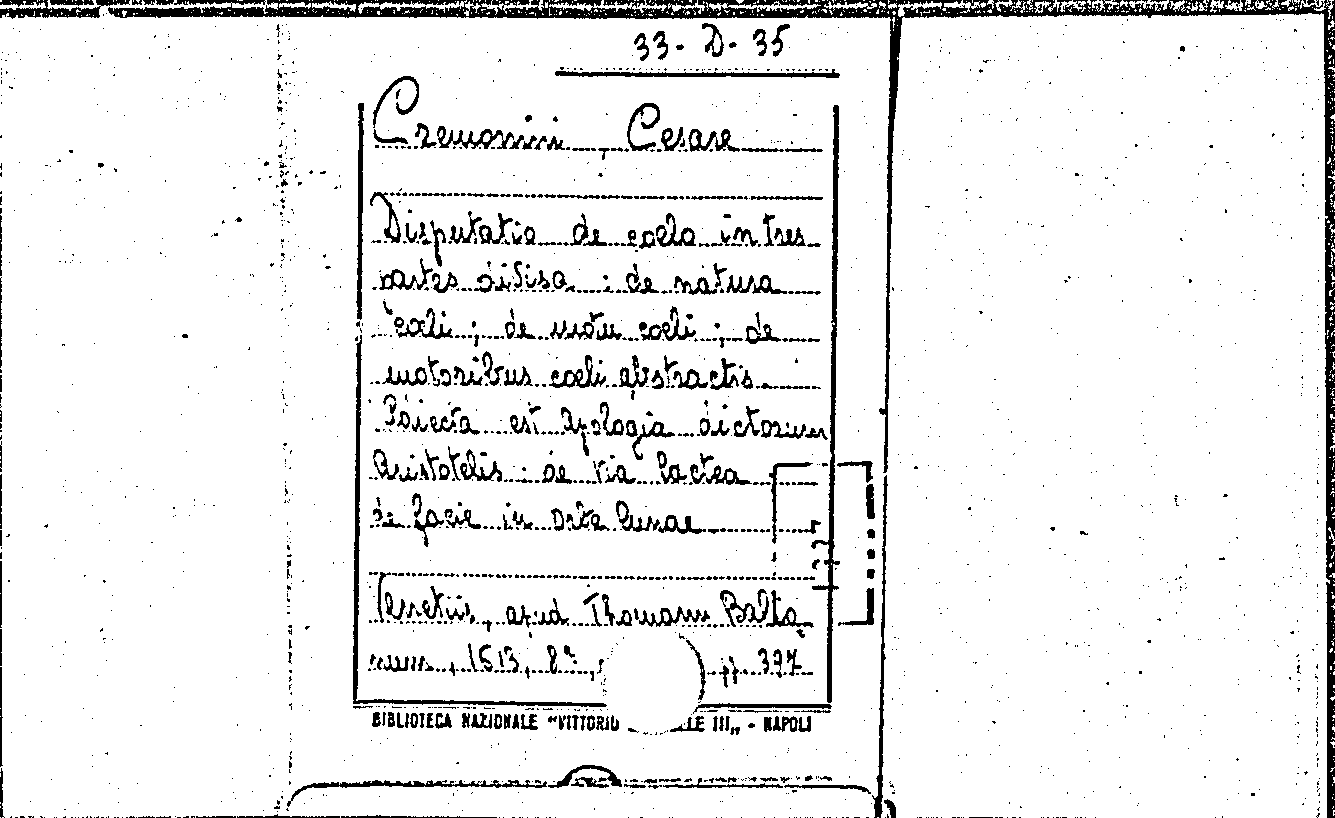 33-D-35
Cremonini, Cesare
Disputatio de coelo in tres
partes divisa : de natura
coeli ; de motu coeli ; de
motoribus coeli abstractis.
Adiecta est Apologia dictorum
Aristotelis : de via lactea
de facie in orbe lunae
Venetiis, apud Thomam Balio
num, 1613, 8°, pp. 397
BIBLIOTECA NAZIONALE "VITTORIO LE III„ - NAPOLI